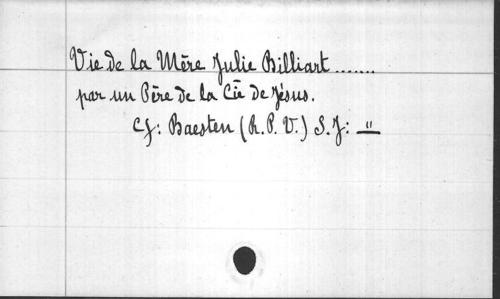 Vie de la Mère Julie Billiart .......
par un Père de la Cie de Jésus.
Cf: Baesten (R. P. V.) S. J: — "